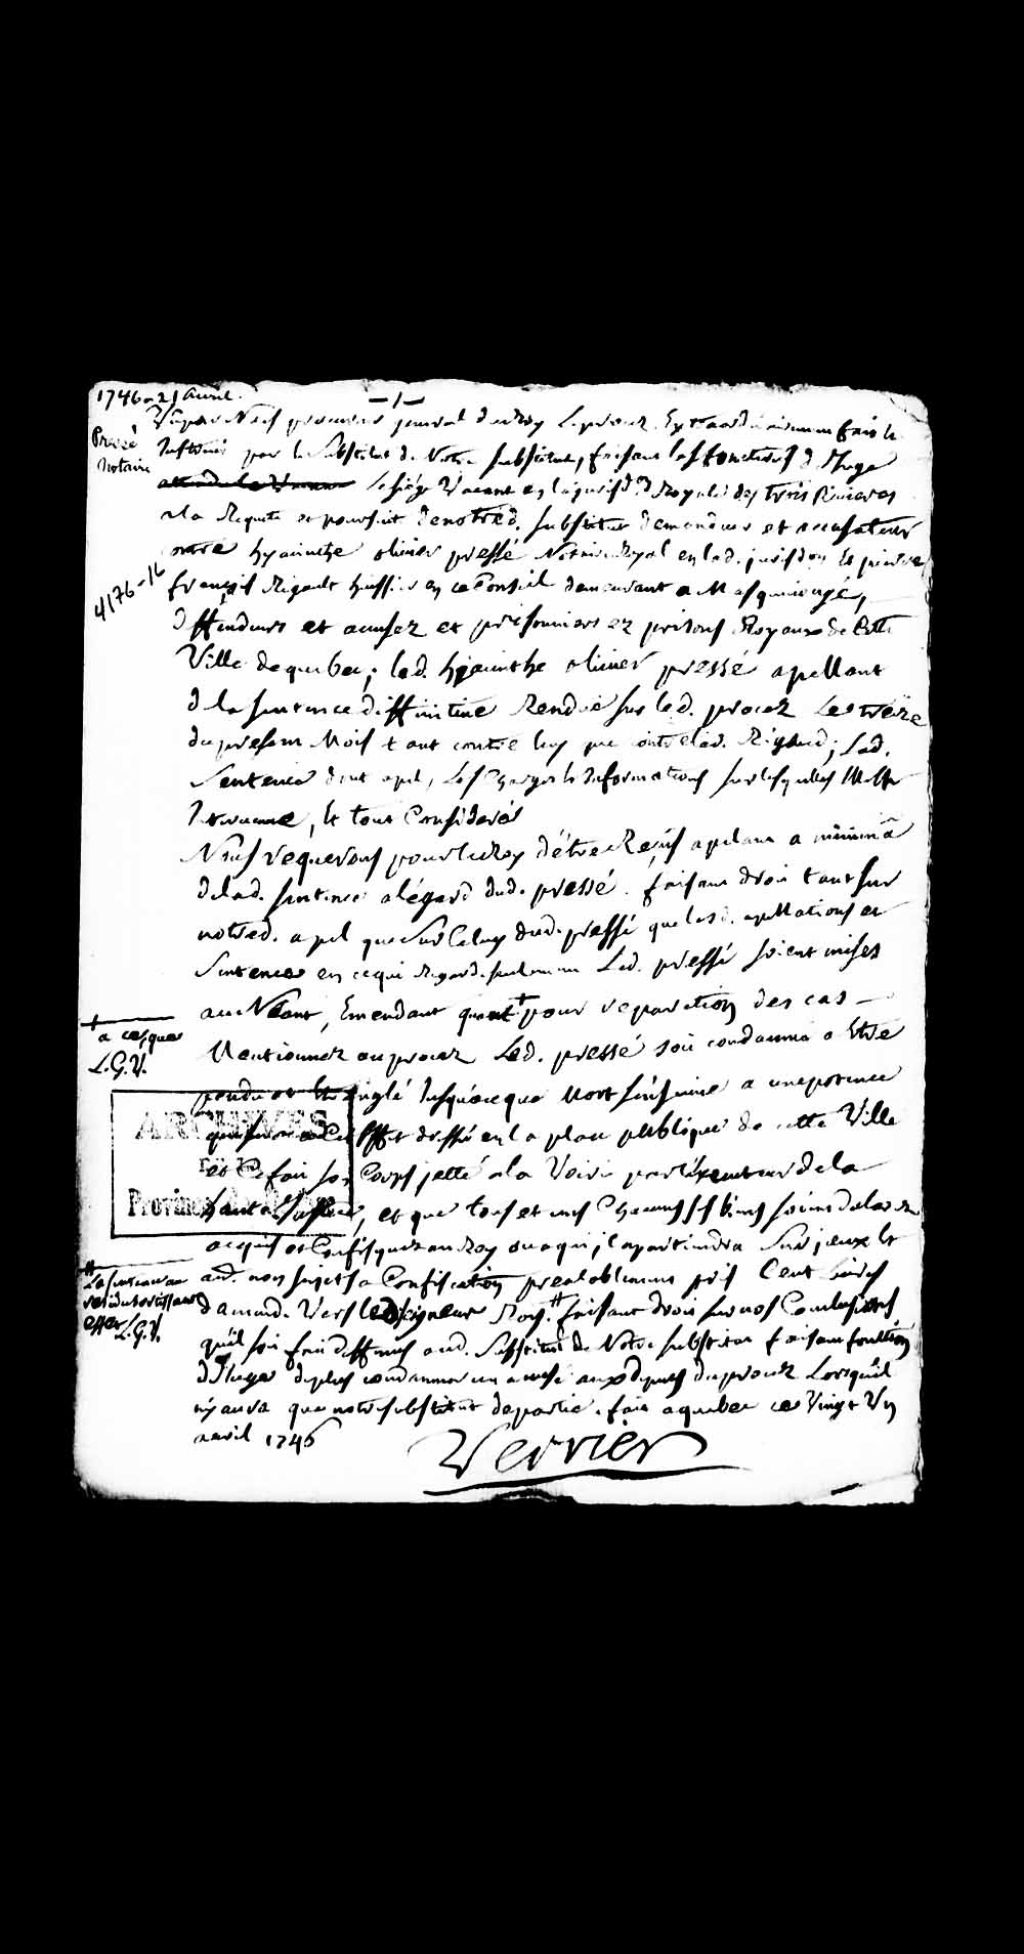 1746-21 avril.
-1-
Vû par Nous procureur general du Roy Le procez Extraordinairement fait &
Pressé
Notaire
Instruit par le Substitut de Notre substitut, faisant les fonctions de Juge
Le siége Vacant en la jurisd.on Royale des trois Rivieres
a la Requete et poursuit de notred. substitut demandeur et accusateur
contre hyacinthe olivier pressé Notaire Royal en lad. jurisdon Et pierre
4176-16
françois Rigault huissier en ce Conseil demeurant a Masquinongé,
deffendeurs et accusez et prisonniers ez prisons Royaux de Cette
Ville de quebec; led. hyacinthe olivier pressé apellant
de la sentence diffinitive Rendüe sur led. procez Le treize
du present Mois tant contre luy que contre led. Rigaud; Lad.
Sentence dont apel, Les Charges & Informations sur lesquelles Elle
Intervenue, Et tout Consideré
Nous requerons pour le Roy d'être Reçus apelant a minimâ
de lad. sentence a légard dud. pressé. faisant droit tant sur
notred. apel que Sur Celuy dud. pressé que lesd. apellations et
Sentence en ce qui Regarde seulement Led. pressé soient mises
au Néant, Emendant quant + pour reparation des cas
+ a ce, que
L.G.V.
Mentionnez au procez Led. pressé soit condamné a Etre
pendu et Etranglé Jusqu'a ce que Mort s'ensuive a une potence
ARCHIVES
que sera a Cet Effet dressé en la place publique de cette Ville
DE LA
et Ce fait son Corps jetté a la Voirie par l'éxecuteur de la
Province de
haute Justice, et que tous et uns Chacuns ses biens soient declarez
acquis et Confisquez au Roy ou a qui il apartiendra Sur iceux Et
aud. non sujets a Confiscation prealablement pris Cent Livres
# La sentence au
residu sortissant
effet L.G.V.
damende Vers led Seigneur Roy. # faisant droit sur nos Conclusions,
qu'il soit fait deffenses aud. Substitut de Notre substitut faisant fonction
de Juge de plus condamner un accusé aux depens du procez Lorsquil
ny aura que notre substitut de partie. fait a quebec ce Vingt Un
avril 1746
Verrier